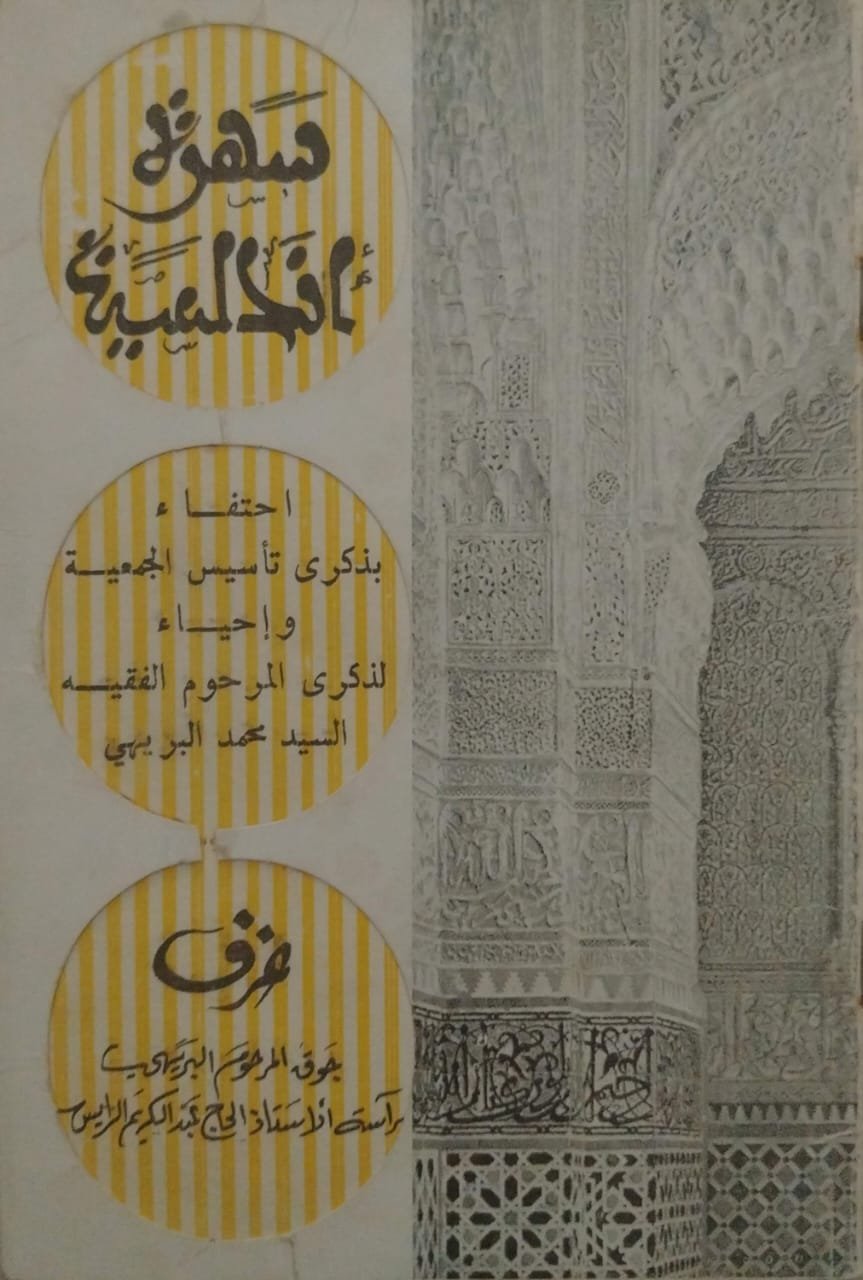 سَهرة
أندلسيّة
احتفاء
بذكرى تأسيس الجمعية
وإحياء
لذكرى المرحوم الفقيه
السيد محمد البريهي
عزف
جوق المرحوم البريهي
برآسة الأستاذ الحاج عبد الكريم الرايس